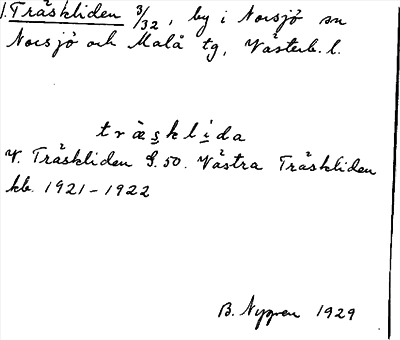 1. Träskliden 3/32, by i Norsjö sn
Norsjö och Malå tg, Västerb. l.
træsklida
V. Träskliden G.50. Västra Träskliden
kb. 1921-1922
B. Nygren 1929